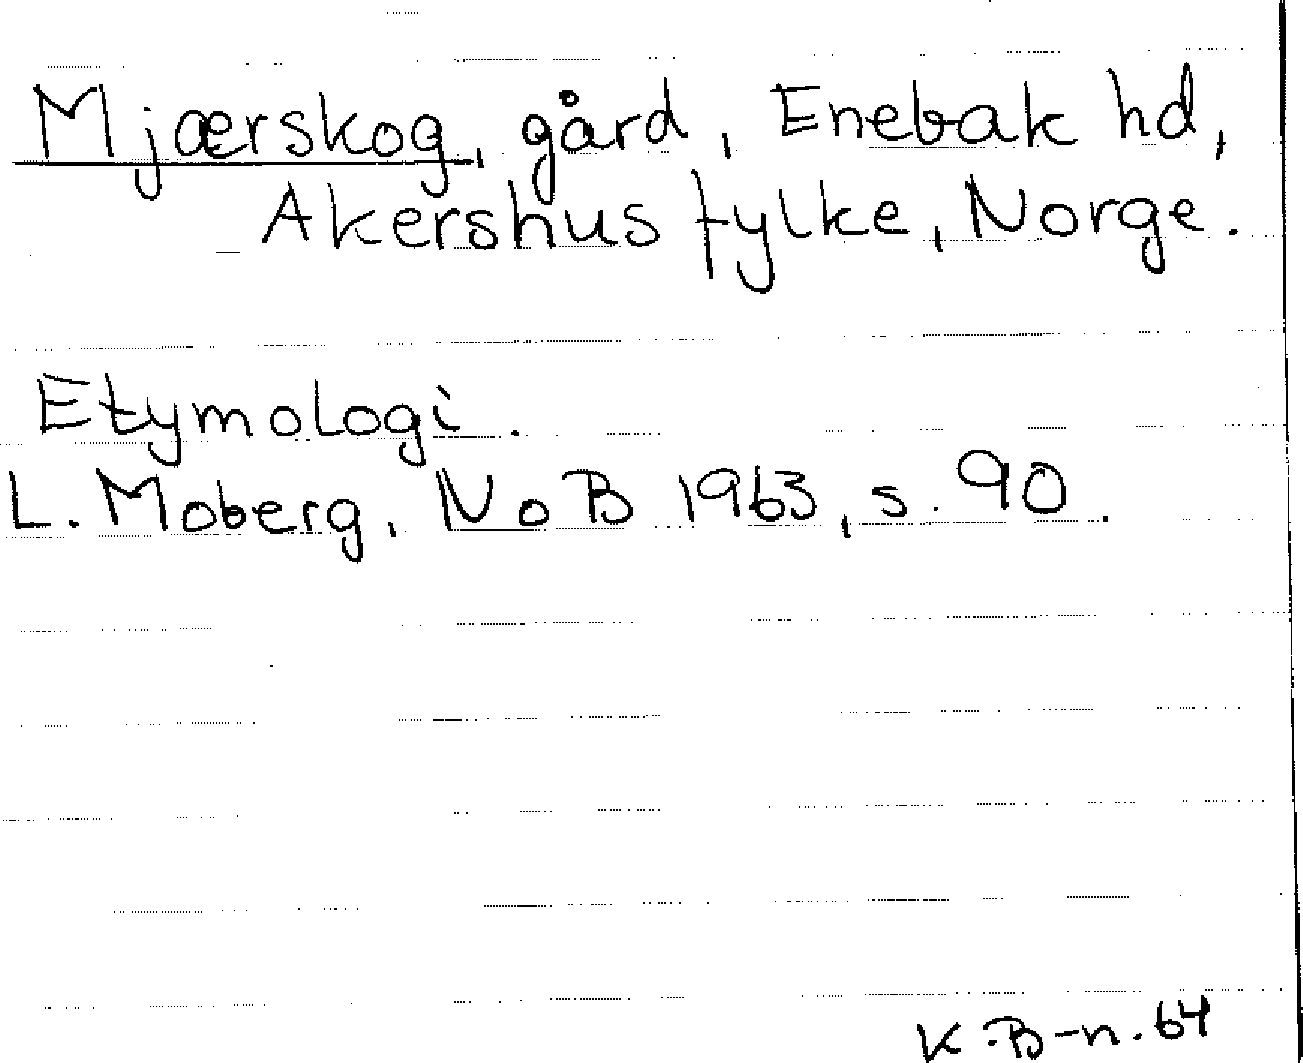 Mjærskog, gård, Enebak hd,
Akershus fylke, Norge.
Etymologi.
L. Moberg, NoB 1963, s. 90.
K. B-n. 64